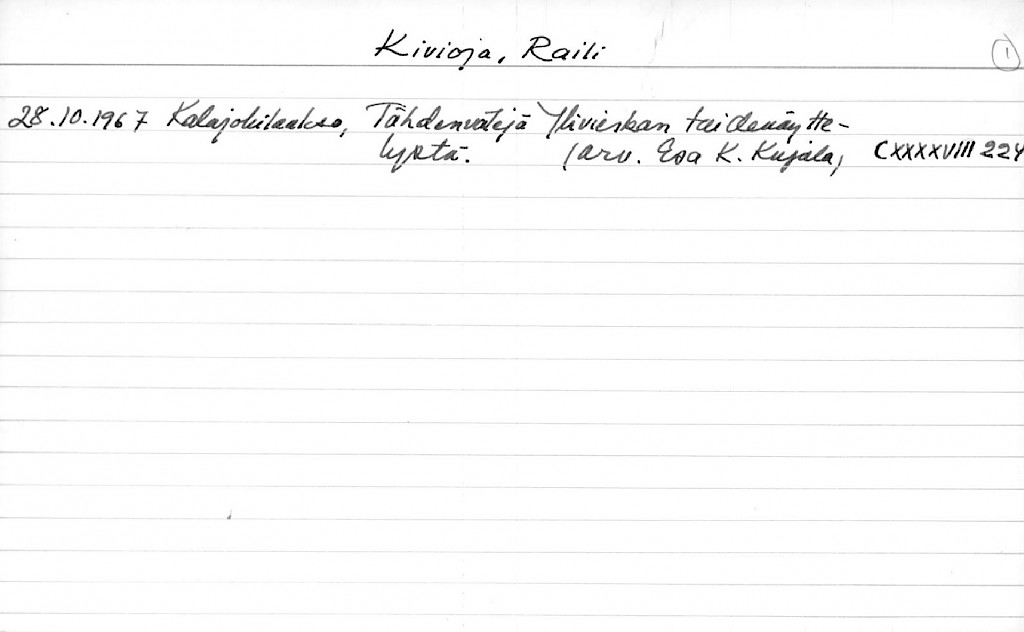 Kivioja, Raili
1
28.10.1967 Kalajokilaakso, Tähdenvälejä Ylivieskan taidenäytte-
lystä. (arv. Esa K. Kujala, CXXXXVIII 224